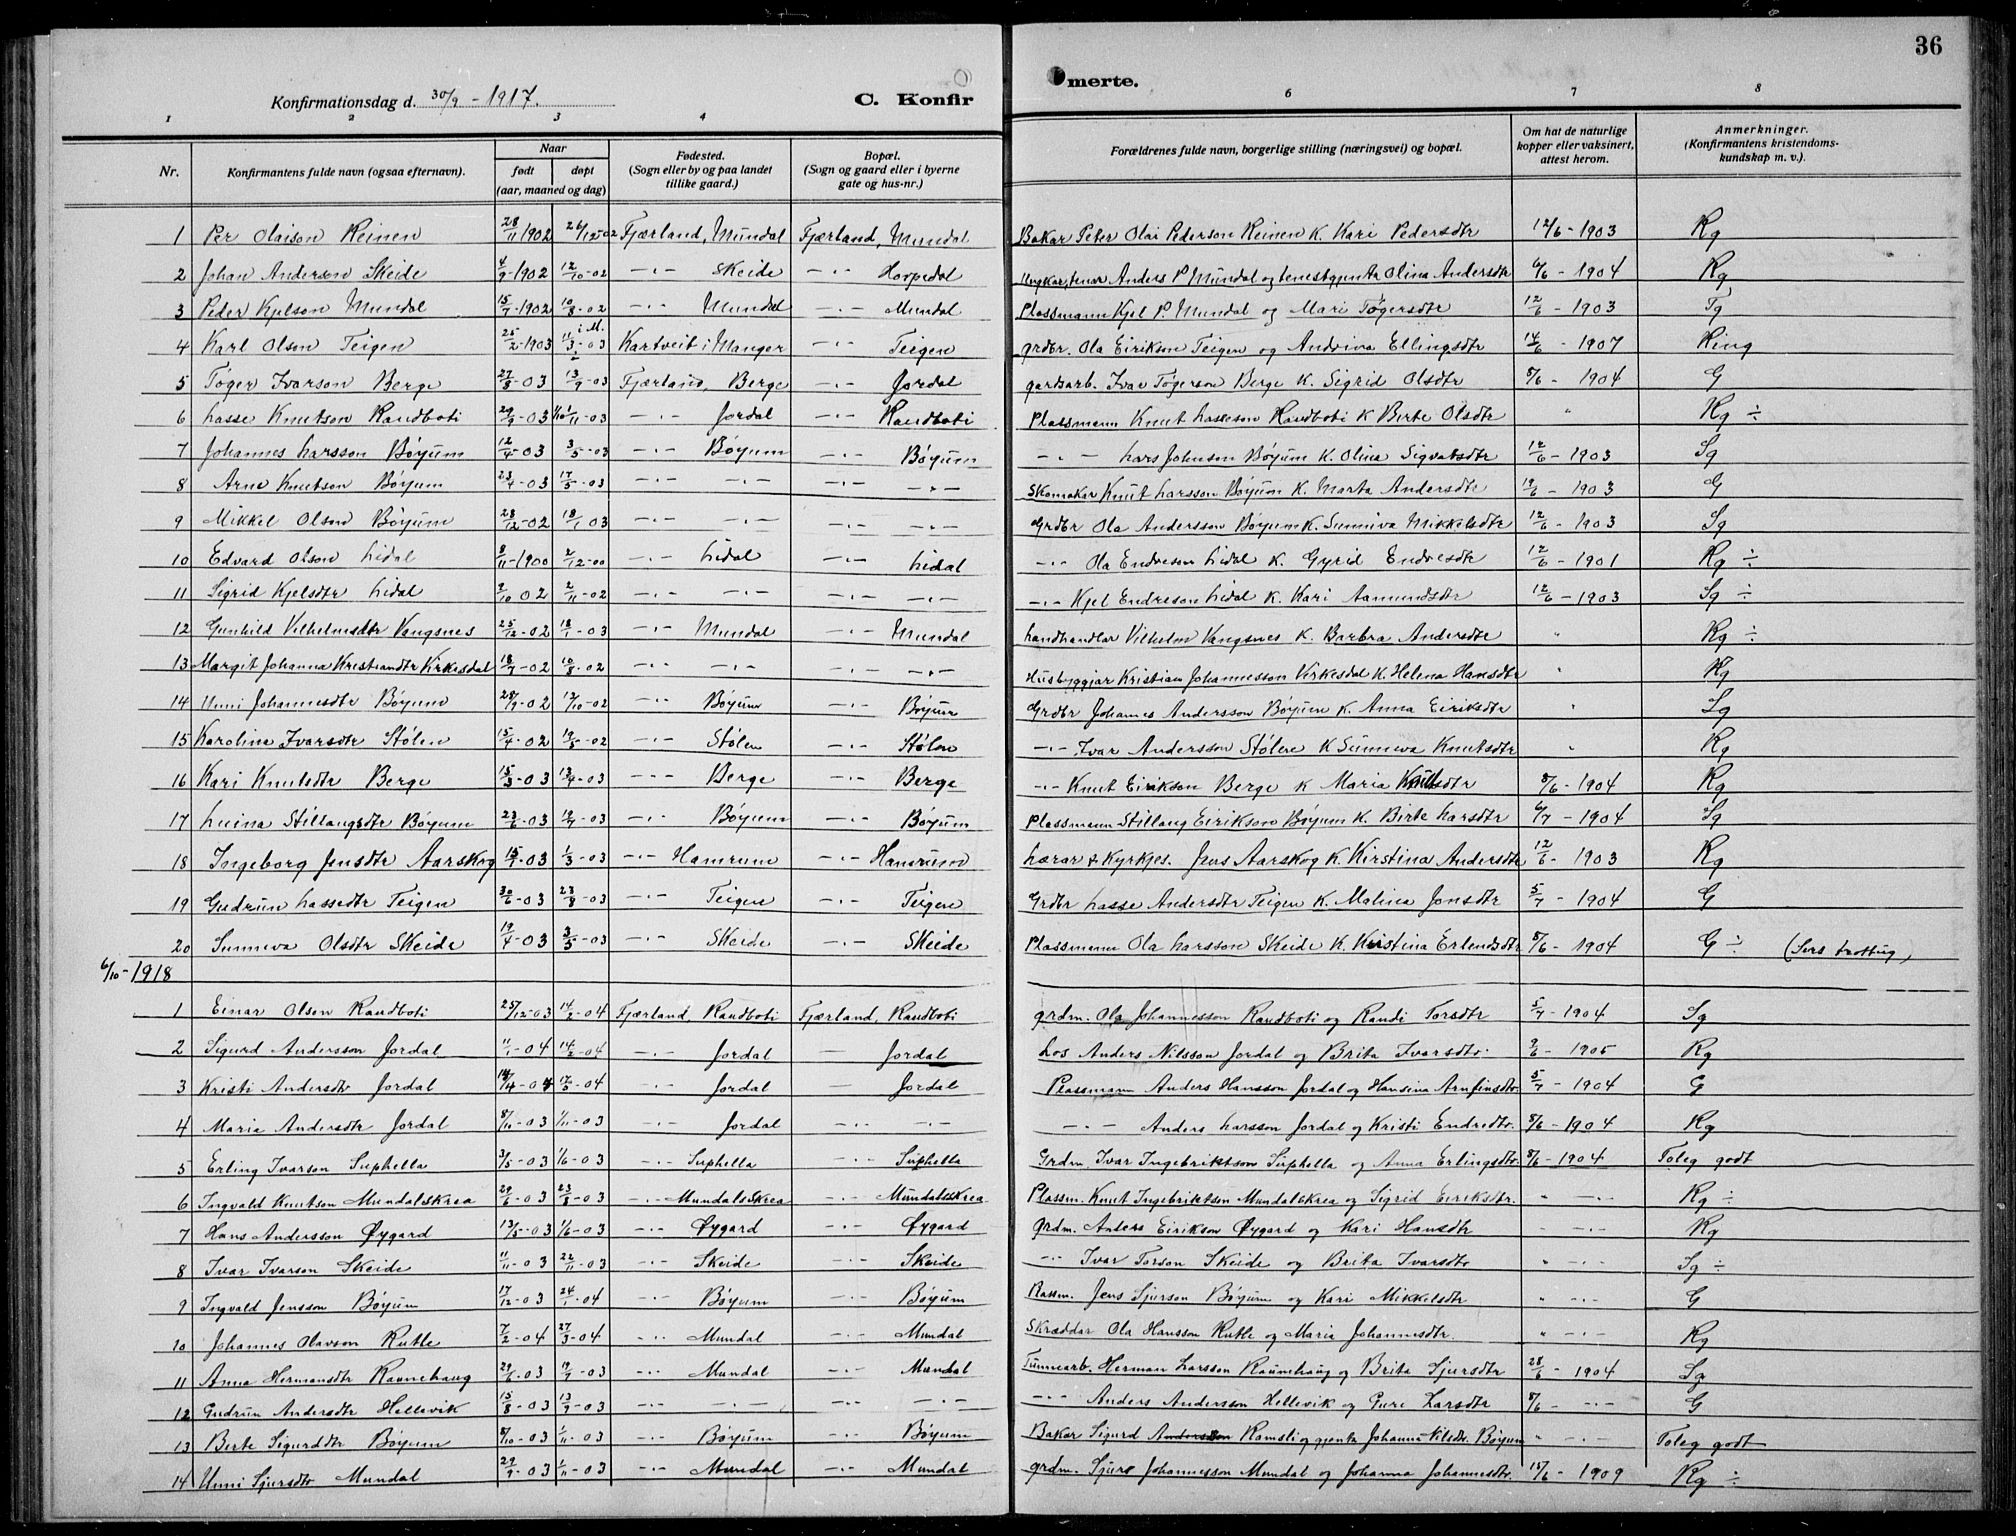 36
Konfirmationsdag d. 30/9 - 1917.
C. Konfirmerte.
1 2 3 4 6 7 8
Nr. Konfirmantens fulde navn (ogsaa efternavn). Naar født døpt (aar, maaned og dag) Fødested. (Sogn eller by og paa landet tillike gaard.) Bopæl. (Sogn og gaard eller i byerne gate og hus-nr.) Forældrenes fulde navn, borgerlige stilling (næringsvei) og bopæl. Om hat de naturlige kopper eller vaksinert, attest herom. Anmerkninger. (Konfirmantens kristendomskundskap m. v.).
1 Per Olaison Reinen 28/11 1902 26/12-02 Fjærland, Mundal Fjærland, Mundal Bakar Peter Olai Pederson Reinen k. Kari Pedersdtr 12/6 - 1903 Rg
2 Johan Anderson Skeide 4/9 - 1902 12/10-02 -"- Skeide -"- Horpedal Ungkar, tenar Anders P Mundal og tenestgjenta Olina Andersdtr 6/6 - 1904 Rg
3 Peder Kjelson Mundal 15/7 - 1902 10/8-02 -"- Mundal -"- Mundal Plassmann Kjel P. Mundal og Mari Tøgersdtr 12/6 - 1903 Tg
4 Karl Olson Teigen 25/2 - 1903 11/3-03 Kartveit i Manger -"- Teigen grdbr. Ola Eirikson Teigen og Andriva Ellingsdtr 14/6 - 1907 Ring
5 Tøger Ivarson Berge 27/8 - 03 13/9-03 Fjærland, Berge -"- Jordal gardsarb. Ivar Tøgerson Berge k. Sigrid Olsdtr 8/6 - 1904 G
6 Lasse Knutson Raudboti 29/9 - 03 1/11-03 -"- Jordal -"- Raudboti Plassmann Knut Lasseson Raudboti k Berte Olsdtr " Rg ÷
7 Johannes Larsson Bøyum 12/4-03 3/5-03 -"- Bøyum -"- Bøyum -"- Lars Johnson Bøyum k. Olina Sigvatsdtr 12/6 - 1903 Sg
8 Arne Knutson Bøyum 23/4-03 17/5-03 -"- -"- -"- -"- Skomakar Knut Larsson Bøyum k. Marta Andersdtr 19/6 - 1903 G
9 Mikkel Olson Bøyum 28/12-02 18/1 03 -"- -"- -"- Grdbr Ola Andersson Bøyum k. Sunniva Mikkelsdtr 12/6 - 1903 Sg
10 Edvard Olson Lidal 8/11-1900 2/12-00 -"- Lidal -"- Lidal -"- Ola Endreson Lidal k. Gyrid Endresdtr 12/6 - 1901 Rg ÷
11 Sigrid Kjelsdtr Lidal 9/10 02 2/11-02 -"- -"- -"- -"- -"- Kjel Endreson Lidal k. Kari Aamundsdtr 12/6 - 1903 Sg ÷
12 Gunhild Vilhelmsdtr Vangsnes 25/12-02 18/1-03 -"- Mundal -"- Mundal Landhandlar Vilhelm Vangsnes k. Barbra Andersdtr " Rg ÷
13 Margit Johanna Kristiandtr Virkesdal 18/7-02 10/8-02 -"- -"- -"- -"- Husbyggjar Kristian Johannesson Virkesdal k. Helena Hansdtr " Rg
14 Unni Johannesdtr Bøyum 28/9-02 12/10-02 -"- Bøyum -"- Bøyum Grdbr Johanes Andersson Bøyum k. Anna Eiriksdtr " Sg
15 Karolina Ivarsdtr Stølen 15/4-02 19/5-02 -"- Stølen -"- Stølen -"- Ivar Andersson Stølen k Sunneva Knutsdtr " Rg
16 Kari Knutsdtr Berge 15/3-03 13/4-03 -"- Berge -"- Berge -"- Knut Eirikson Berge k Maria Knutsdtr 8/6 - 1904 Rg
17 Luina Stillaugsdtr Bøyum 23/6-03 12/7-03 -"- Bøyum -"- Bøyum Plassmann Stillaug Eirikson Bøyum k. Birte Larsdtr 6/7 - 1904 Sg
18 Ingeborg Jensdtr Aarskog 15/1-03 1/3-03 -"- Hamrum -"- Hamrum Lærar & Kyrkjes. Jens Aarskog k. Kirstina Andersdtr 12/6 - 1903 Rg
19 Gudrun Lassedtr Teigen 30/6-03 23/8-03 -"- Teigen -"- Teigen Grdbr Lasse Andersdtr Teigen k. Malina Jonsdtr 5/7 - 1904 G
20 Sunneva Olsdtr Skeide 19/4-03 3/5-03 -"- Skeide -"- Skeide Plassmann Ola Larsson Skeide k. Kristina Erlendsdtr 8/6 - 1904 G ÷
6/10 - 1918
1 Einar Olson Raudboti 25/12-03 14/2-04 Fjærland, Raudboti Fjærland, Raudboti grdm. Ola Johannesson Raudboti og Randi Torsdtr 5/7 - 1904 Sg
2 Sigurd Andersson Jordal 11/1-04 14/2-04 -"- Jordal — Jordal Los Anders Nilsson Jordal og Brita Ivarsdtr. 9/6 - 1905 Rg
3 Kristi Andersdtr Jordal 14/4-04 17/5-04 -"- Jordal — Jordal Plassmann Anders Hansson Jordal og Hansina Arnfinsdtr. 5/7 - 1904 G
4 Maria Andersdtr Jordal 8/11-03 1/11-03 -"- Jordal -"- -"- -"- Anders Larsson Jordal og Kristi Endredtr. 8/6 - 1904 Rg
5 Erling Ivarson Suphella 3/5-03 1/6-03 -"- Suphella -"- Suphella Grdm. Ivar Ingebriktson Suphella og Anna Erlingsdtr. 8/6 - 1904 Toleg godt
6 Ingvald Knutson Mundalskrea 29/6-03 23/8-03 -"- Mundalskrea -"- Mundalskrea Plassm. Knut Ingebriktson Mundalskrea og Sigrid Eiriksdtr. " -"- Rg ÷
7 Hans Andersson Øygard 13/5-03 1/6-03 -"- Øygard -"- Øygard grdm. Anders Eirikson Øygard og Kari Hansdtr " -"- Rg
8 Ivar Ivarson Skeide 11/11-03 22/11-03 -"- Skeide -"- Skeide -"- Ivar Torson Skeide og Brita Ivarsdtr " -"- Sg ÷
9 Ingvald Jensson Bøyum 17/12-03 24/1-04 -"- Bøyum -"- Bøyum Plassm. Jens Sjurson Bøyum og Kari Mikkelsdtr " -"- G
10 Johannes Olavson Rutle 7/2-04 27/3-04 -"- Mundal -"- Mundal Skræddar Ola Hansson Rutle og Maria Johannesdtr. " -"- Rg
11 Anna Hermansdtr Raunehaug 29/6-03 19/7-03 -"- Mundal -"- Mundal Tunnearb. Herman Larsson Raunehaug og Brita Sjursdtr 28/6 - 1904 Sg
12 Gudrun Andersdtr Hellevik 15/8-03 13/9-03 -"- -"- -"- -"- Anders Anderson Hellevik og Guri Larsdtr 8/6 -"- G
13 Berte Sigurddtr Bøyum 8/10-03 1/11-03 -"- Bøyum -"- Bøyum Bakar Sigurd Anderson Ramsli og gjenta Johanna Nilsdtr. Bøyum " -"- Toleg godt
14 Unni Sjursdtr Mundal 29/9-03 1/11-03 -"- Mundal -"- Mundal grdm. Sjur Johannesson Mundal og Johanna Johannesdtr. 15/6 - 1909 Rg ÷